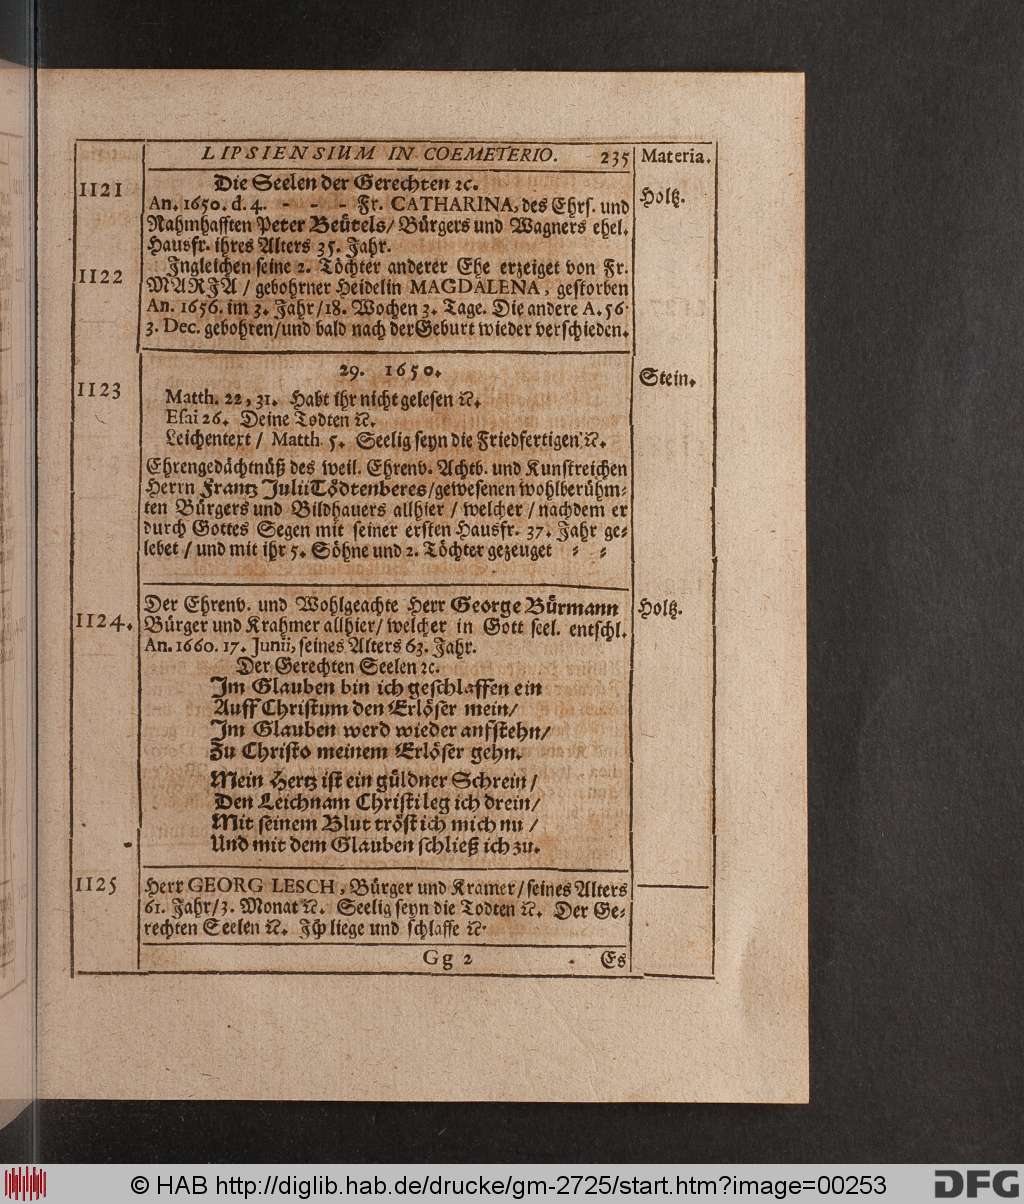 LIPSIENSIUM IN COEMETERIO. 235 Materia.
1121 Die Seelen der Gerechten ꝛc.
An. 1650. d. 4. - - - Fr. CATHARINA, des Ehrſ. und Holtz.
Nahmhafften Peter Beütels/ Bürgers und Wagners ehel.
Hausfr. ihres Alters 35. Jahr.
1122 Ingleichen ſeine 2. Töchter anderer Ehe erzeiget von Fr.
MARIA / gebohrner Heidelin MAGDALENA, geſtorben
An. 1656. im 3. Jahr/18. Wochen 3. Tage. Die andere A. 56.
3. Dec. gebohren/und bald nach der Geburt wieder verſchieden.
29. 1650.
1123 Stein.
Matth. 22, 31. Habt ihr nicht geleſen ꝛc.
Eſai 26. Deine Todten ꝛc.
Leichentext / Matth. 5. Seelig ſeyn die Friedfertigen ꝛc.
Ehrengedächtnüß des weil. Ehrenv. Achtb. und Kunſtreichen
Herrn Frantz Julii Tödtenberes/geweſenen wohlberühm-
ten Bürgers und Bildhauers allhier / welcher / nachdem er
durch Gottes Segen mit ſeiner erſten Hausfr. 37. Jahr ge-
lebet / und mit ihr 5. Söhne und 2. Töchter gezeuget - -
Der Ehrenv. und Wohlgeachte Herr George Bürmann Holtz.
1124. Bürger und Krahmer allhier/ welcher in Gott ſeel. entſchl.
An. 1660. 17. Junii, ſeines Alters 63. Jahr.
Der Gerechten Seelen ꝛc.
Im Glauben bin ich geſchlaffen ein
Auff Chriſtum den Erlöſer mein/
Im Glauben werd wieder anfſtehn/
Zu Chriſto meinem Erlöſer gehn.
Mein Hertz iſt ein güldner Schrein /
Den Leichnam Chriſti leg ich drein/
Mit ſeinem Blut tröſt ich mich nu /
Und mit dem Glauben ſchließ ich zu.
1125 Herr GEORG LESCH, Bürger und Kramer/ ſeines Alters
61. Jahr/3. Monat ꝛc. Seelig ſeyn die Todten ꝛc. Der Ge-
rechten Seelen ꝛc. Ich liege und ſchlaffe ꝛc.
Gg 2 Es
© HAB http://diglib.hab.de/drucke/gm-2725/start.htm?image=00253
DFG